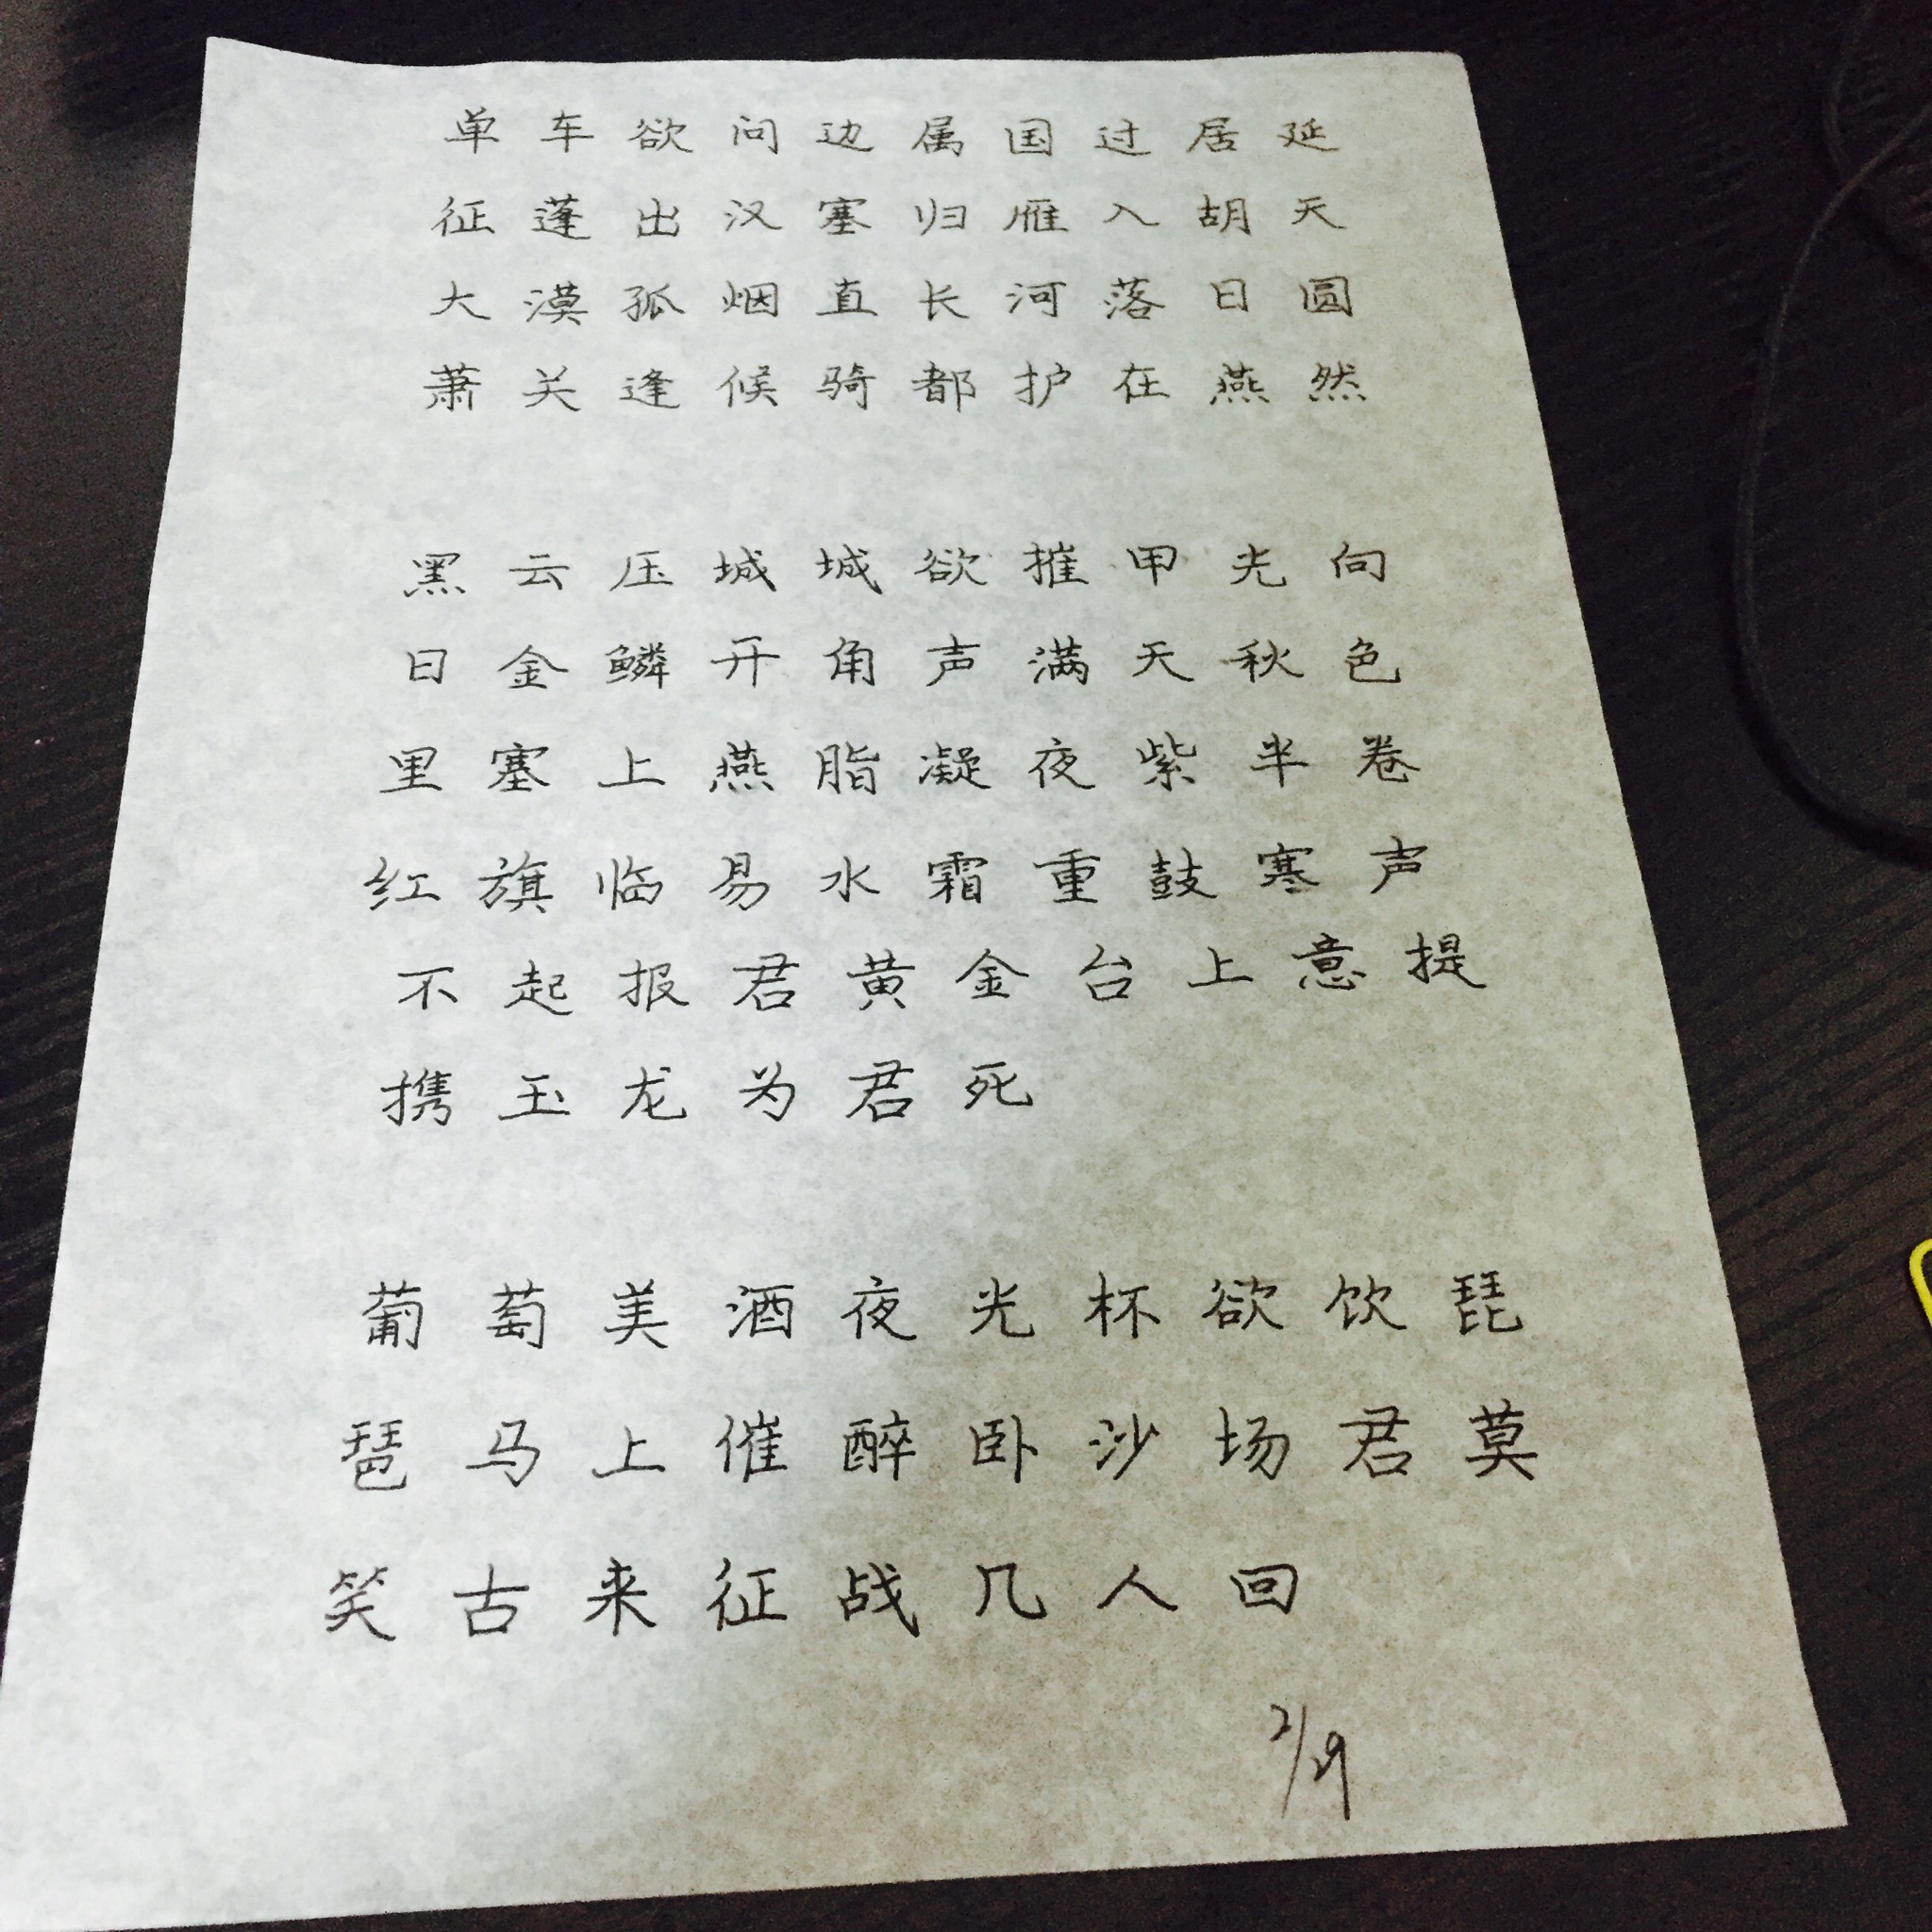 单车欲问边属国过居延
征蓬出汉塞归雁入胡天
大漠孤烟直长河落日圆
萧关逢候骑都护在燕然
黑云压城城欲摧甲光向
日金鳞开角声满天秋色
里塞上燕脂凝夜紫半卷
红旗临易水霜重鼓寒声
不起报君黄金台上意提
携玉龙为君死
葡萄美酒夜光杯欲饮琵
琶马上催醉卧沙场君莫
笑古来征战几人回
2/29